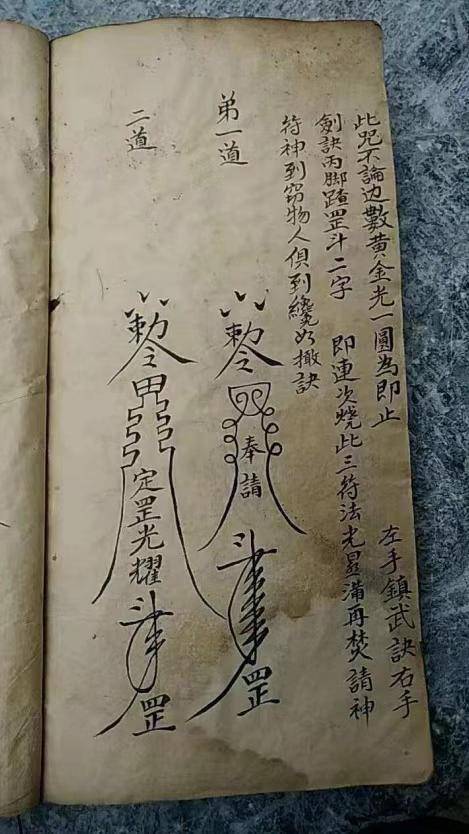 此咒不論边數黃金光一圓為即止 左手鎮武訣右手
劍訣两脚踏罡斗二字 即連次燒此三符法光显滿再焚請神
符神到窃物人俱到纔好撤訣
第一道
勅令 奉請 罡
二道
勅令 定罡光耀 罡